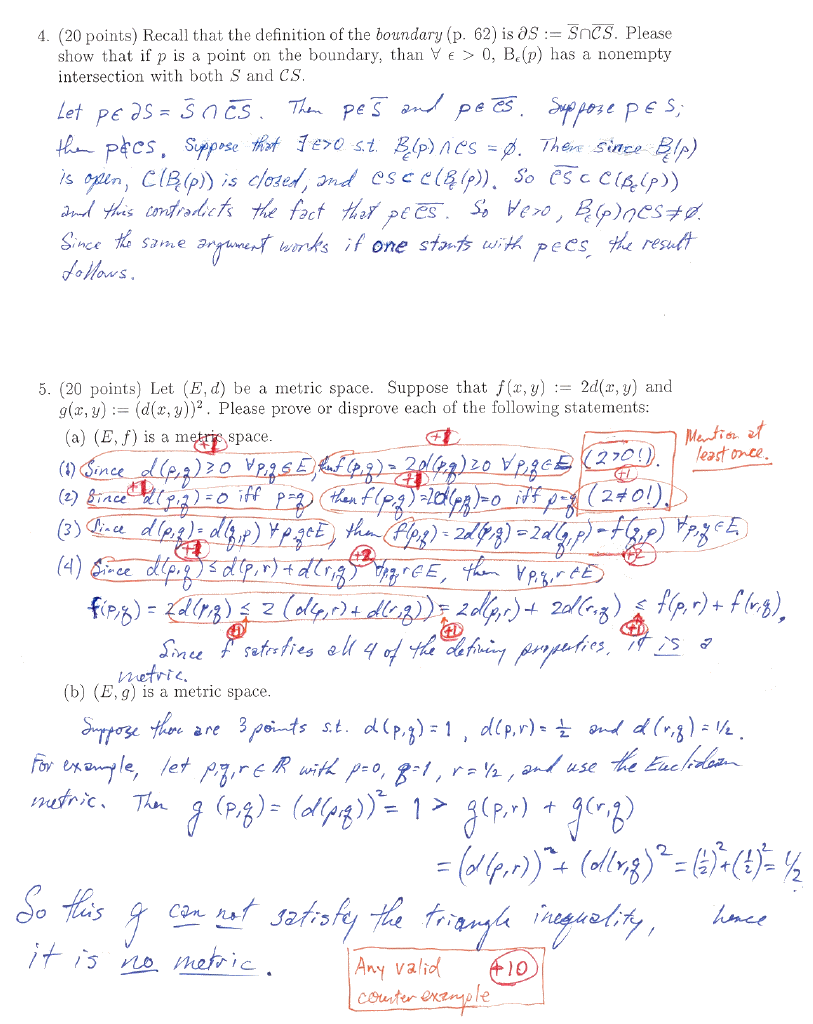 4. (20 points) Recall that the definition of the boundary (p. 62) is ∂S := S̅∩C̅S̅. Please
show that if p is a point on the boundary, than ∀ ε > 0, Bε(p) has a nonempty
intersection with both S and CS.
Let p∈ ∂S = S̅ ∩ C̅S̅. Then p∈S̅ and p∈C̅S̅. Suppose p∈S;
then p∉CS. Suppose that ∃ε>0 s.t. Bε(p)∩CS = ∅. Then since Bε(p)
is open, C(Bε(p)) is closed, and CS⊂C(Bε(p)). So C̅S̅ ⊂ C(Bε(p))
and this contradicts the fact that p∈C̅S̅. So ∀ε>0, Bε(p)∩CS≠∅.
Since the same argument works if one starts with p∈CS, the result
follows.
5. (20 points) Let (E, d) be a metric space. Suppose that f(x, y) := 2d(x, y) and
g(x, y) := (d(x, y))². Please prove or disprove each of the following statements:
(a) (E, f) is a metric space.
+1 +1 Mention at
(1) Since d(p,q)≥0 ∀p,q∈E, f(p,q) = 2d(p,q)≥0 ∀p,q∈E (2>0!). least once.
+1 +1 +1
(2) Since d(p,q)=0 iff p=q, then f(p,q)=2d(p,q)=0 iff p=q (2≠0!).
(3) Since d(p,q)=d(q,p) ∀p,q∈E, then f(p,q)=2d(p,q)=2d(q,p)=f(q,p) ∀p,q∈E.
+2 +2
(4) Since d(p,q)≤d(p,r)+d(r,q) ∀p,q,r∈E, then ∀p,q,r∈E
f(p,q) = 2d(p,q) ≤ 2(d(p,r)+d(r,q)) = 2d(p,r)+2d(r,q) ≤ f(p,r)+f(r,q).
+1 +1 +1
Since f satisfies all 4 of the defining properties, it is a
metric.
(b) (E, g) is a metric space.
Suppose there are 3 points s.t. d(p,q)=1, d(p,r)=½ and d(r,q)=1/2.
For example, let p,q,r∈ℝ with p=0, q=1, r=1/2, and use the Euclidean
metric. Then g(p,q)=(d(p,q))²=1 > g(p,r)+g(r,q)
=(d(p,r))²+(d(r,q))²=(½)²+(½)²=1/2
So this g can not satisfy the triangle inequality, hence
it is no metric.
Any valid +10
counter example